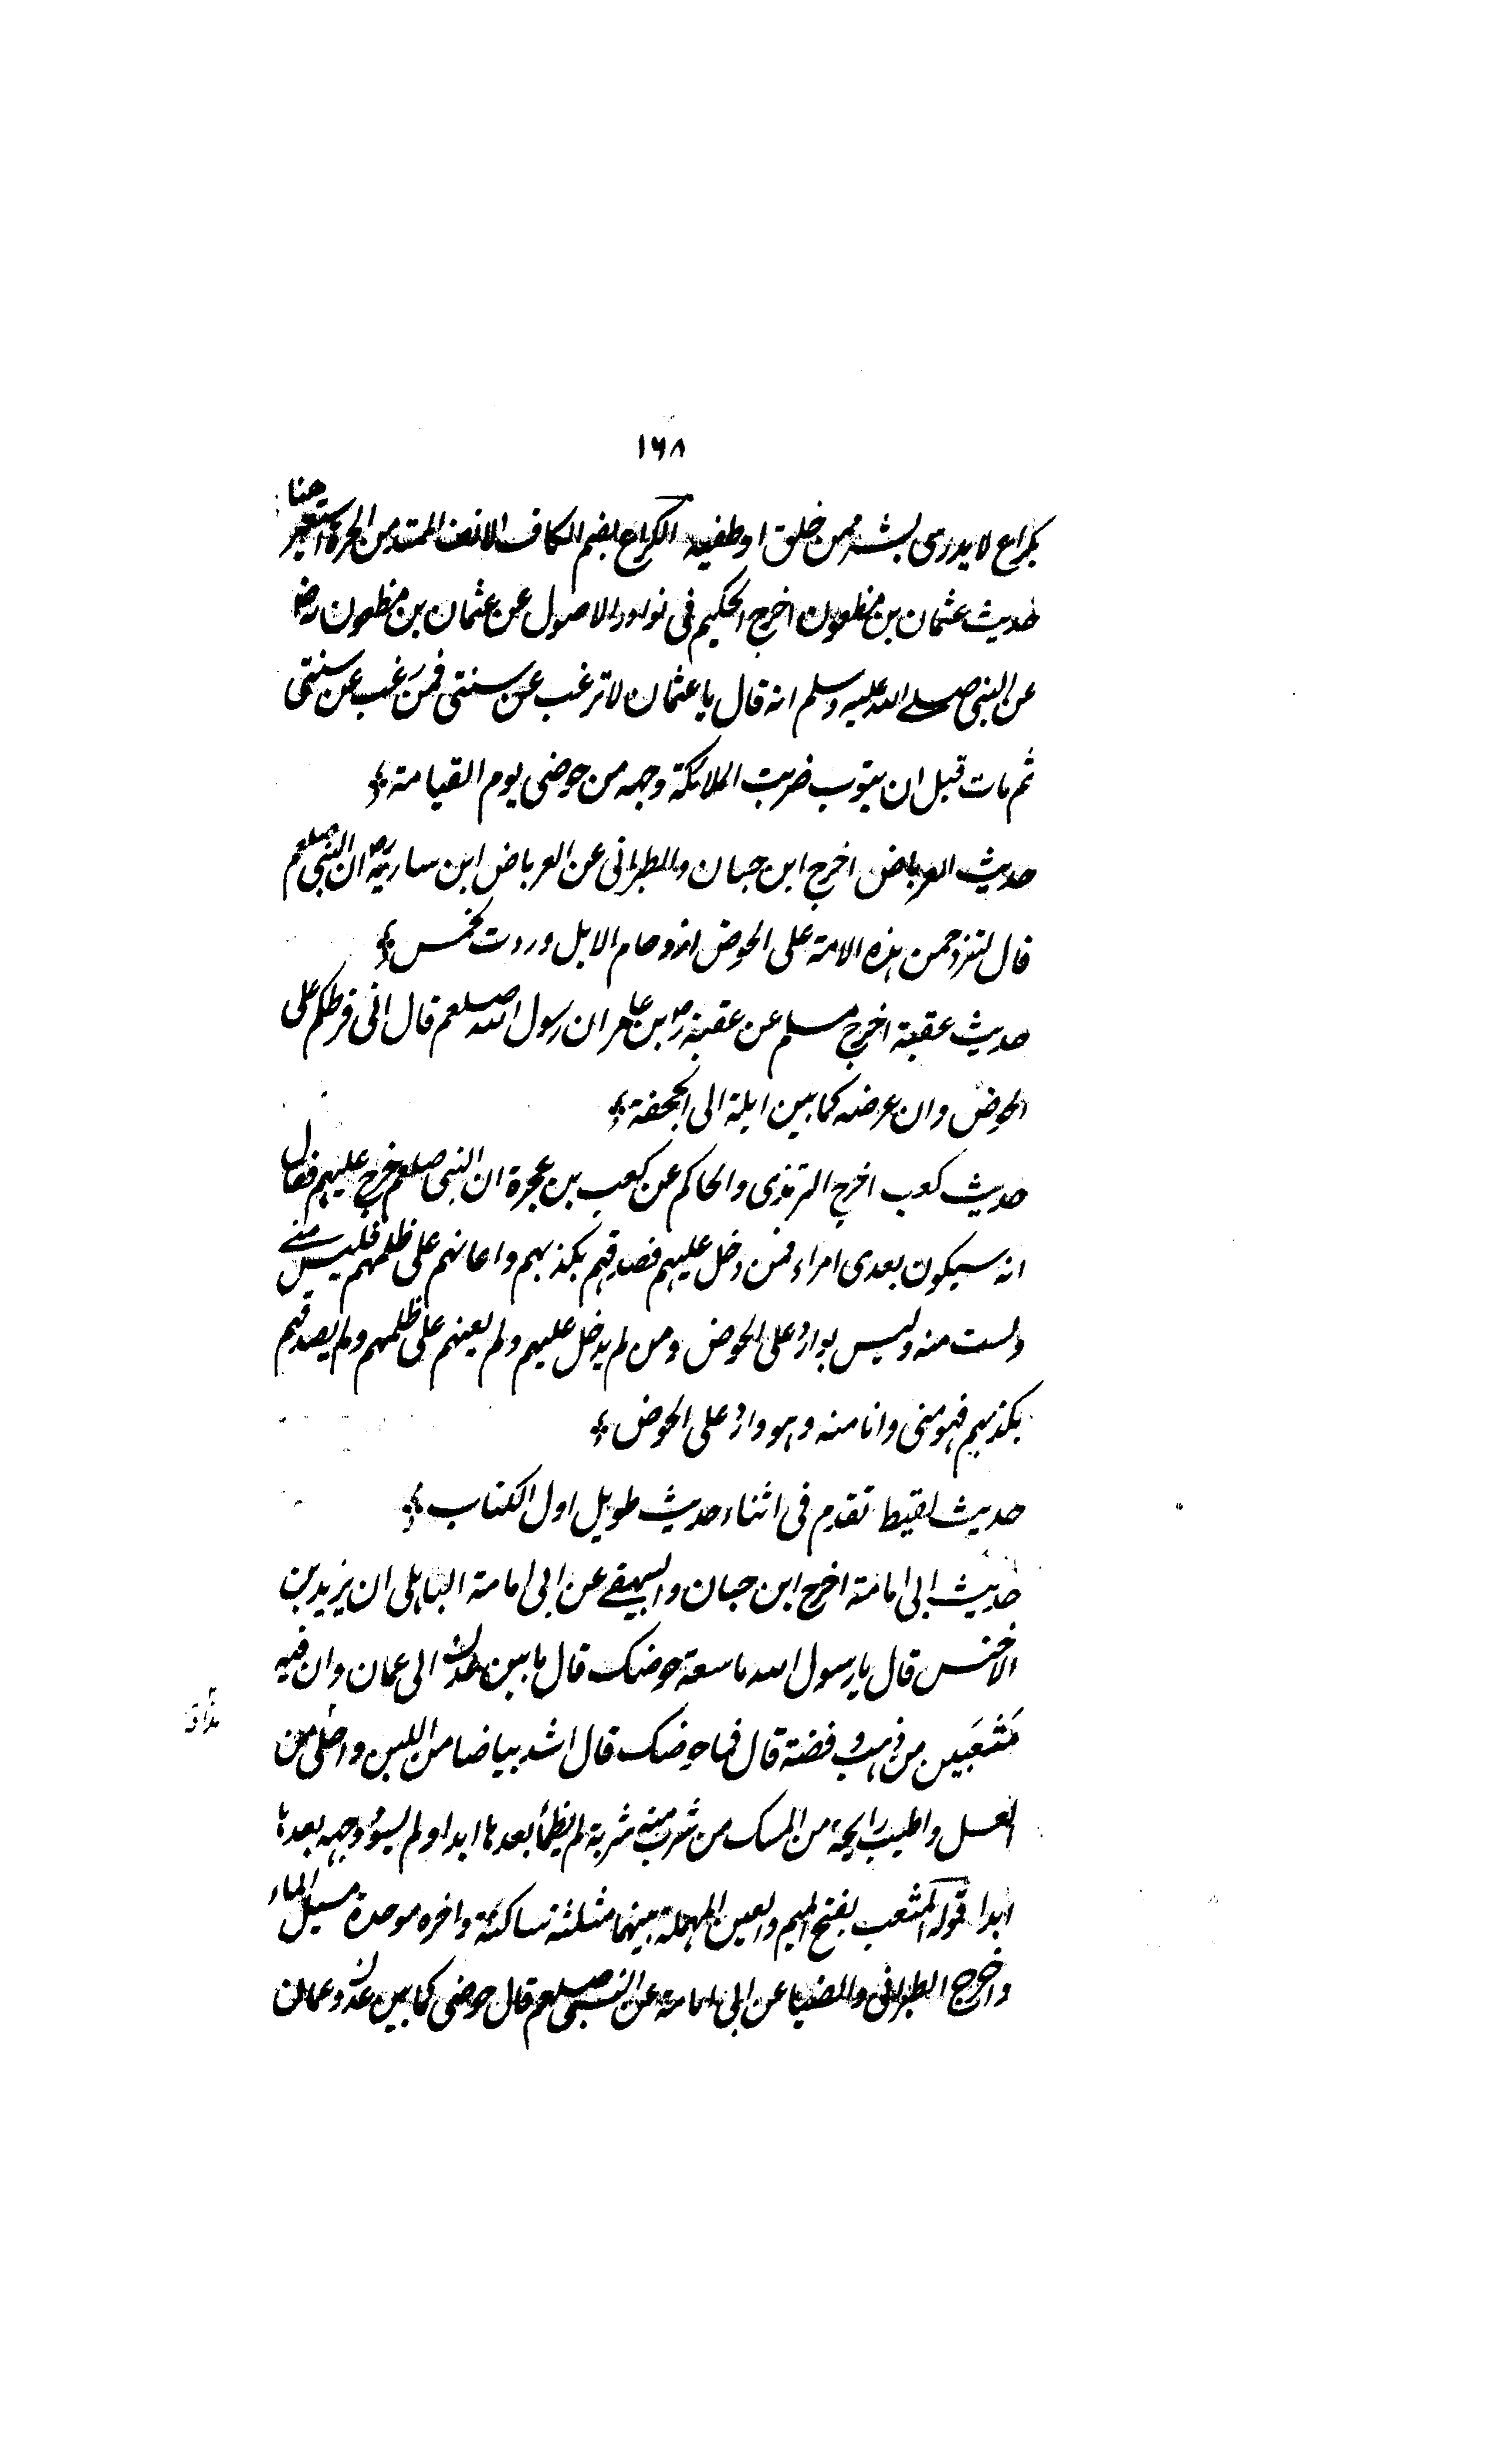 ١٦٨
بكراع لا يدرى بشر ممن خلق او طفيه الكراع بضم الكاف الانف الممتد من الحرة استعير هنا
حديث عثمان بن مظعون اخرج الحكيم فى نوادر الاصول عن عثمان بن مظعون رضـ
عن النبى صلى الله عليه وسلم انه قال يا عثمان لا ترغب عن سنتى فمن رغب عن سنتى
ثم مات قبل ان يتوب ضربت الملائكة وجهه من حوضى يوم القيامة
حديث العرباض اخرج ابن حبان والطبرانى عن العرباض ابن سارية رض ان النبى صلعم
قال لتزدحمن هذه الامة على الحوض ازدحام الابل وردت لخمس
حديث عقبة اخرج مسلم عن عقبة رض بن عامر ان رسول الله صلعم قال انى فرطكم على
الحوض وان عرضه كما بين ايلة الى الجحفة
حديث كعب اخرج الترمذى والحاكم عن كعب بن عجرة ان النبى صلعم خرج عليهم فقال
انه سيكون بعدى امراء فمن دخل عليهم فصدقهم بكذبهم واعانهم على ظلمهم فليس منى
ولست منه وليس بوارد على الحوض ومن لم يدخل عليهم ولم يعنهم على ظلمهم ولم يصدقهم
بكذبهم فهو منى وانا منه وهو وارد على الحوض
حديث لقيط تقدم فى اثناء حديث طويل اول الكتاب
حديث ابى امامة اخرج ابن حبان والبيهقى عن ابى امامة الباهلى ان يزيد بن
الاخنس قال يا رسول الله ما سعة حوضك قال ما بين عدن الى عمان وان فيه
مَثْعَبَين من ذهب و فضة قال فما حوضك قال اشد بياضا من اللبن واحلى من
العسل واطيب رايحة من المسك من شرب منه شربة لم يظمأ بعدها ابدا ولم يسود وجهه بعدها
ابدا قوله المثعب بفتح الميم والعين المهملة بينهما مثلثة ساكنة واخره موحدة مسيل الماء
واخرج الطبرانى والضيا عن ابى امامة عن النبى صلعم قال حوضى كما بين عدن وعمان